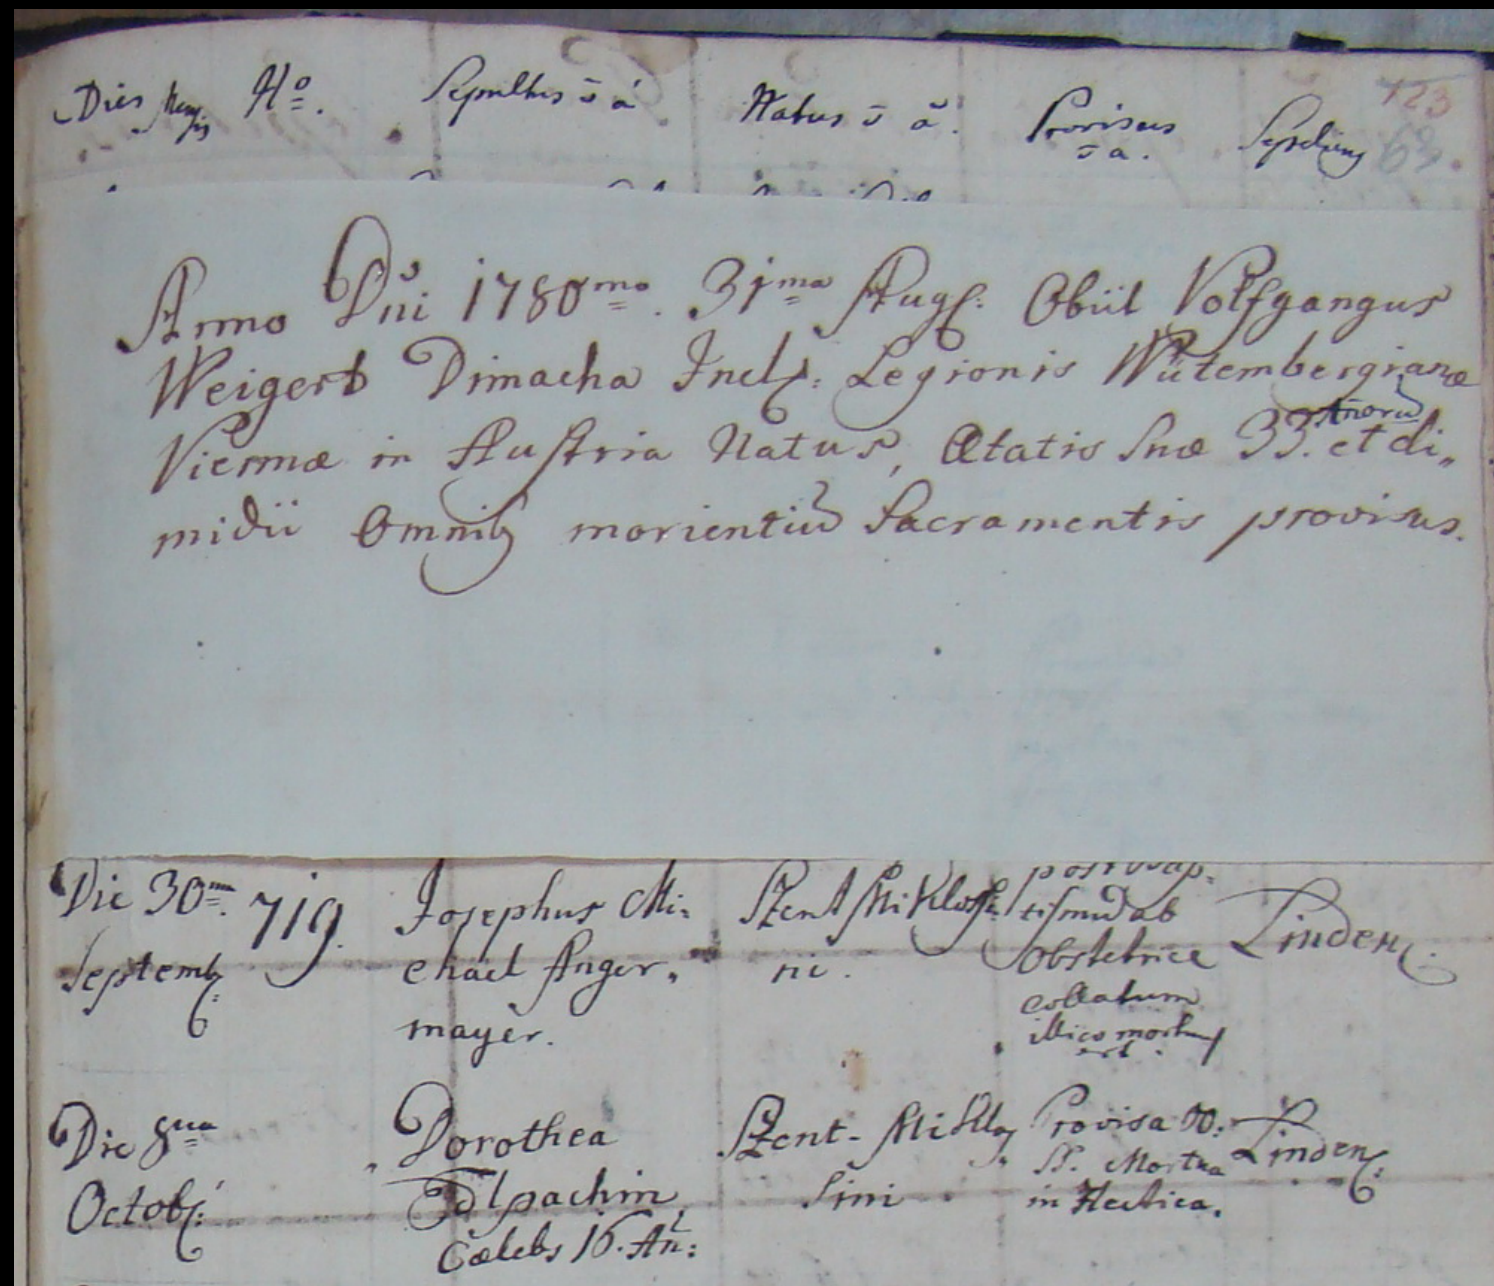 Dies Mensis No. Sepultus s̄ a Natus s̄ ā. Provisus s̄ a. Sepeliens 123
63.
Anno Dn̄i 1780mo. 31ma Aug: Obiit Volfgangus
Weigert Dimacha Incl: Legionis Würtembergianæ
Viennæ in Austria Natus, Ætatis Suæ 33. Añorū et di„
midii Omnib9 morientiū Sacramentis provisus.
Die 30ma.
Septemb:
719.
Josephus Mi:
chael Anger„
mayer.
Szent Miklosi„
ni.
post bap„
tismū ab
Obstetrice
collatum
illico mortuus
est.
Linden:
Die 8va
Octob:
Dorothea
Cælebs 16. Añ:
Szent-Miklo„
sini
Provisa OO:
SS. Mortua
in Hectica.
Linden: